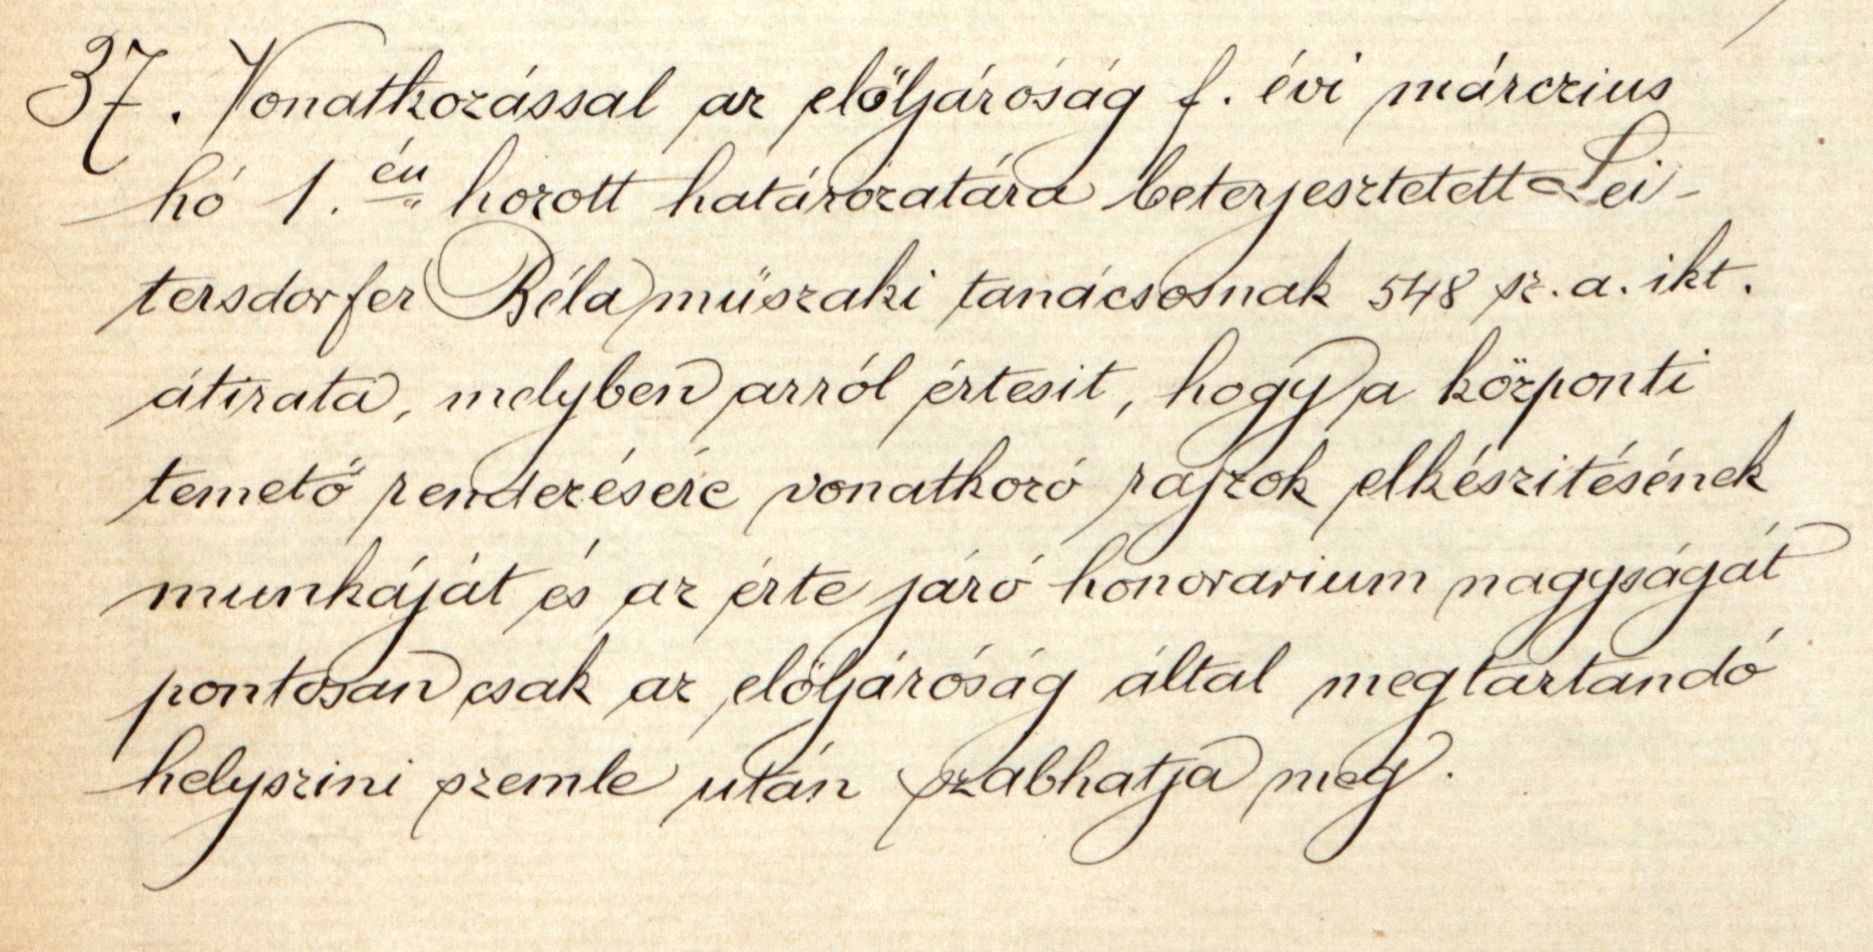 37. Vonatkozással az előljáróság f. évi márczius
hó 1.én hozott határozatára beterjesztetett Lei-
tersdorfer Béla müszaki tanácsosnak 548 sz. a. ikt.
átirata, melyben arról értesit, hogy a központi
temető rendezésére vonatkozó rajzok elkészitésének
munkáját és az érte járó honorarium nagyságát
pontosan csak az előljáróság által megtartandó
helyszini szemle után szabhatja meg.